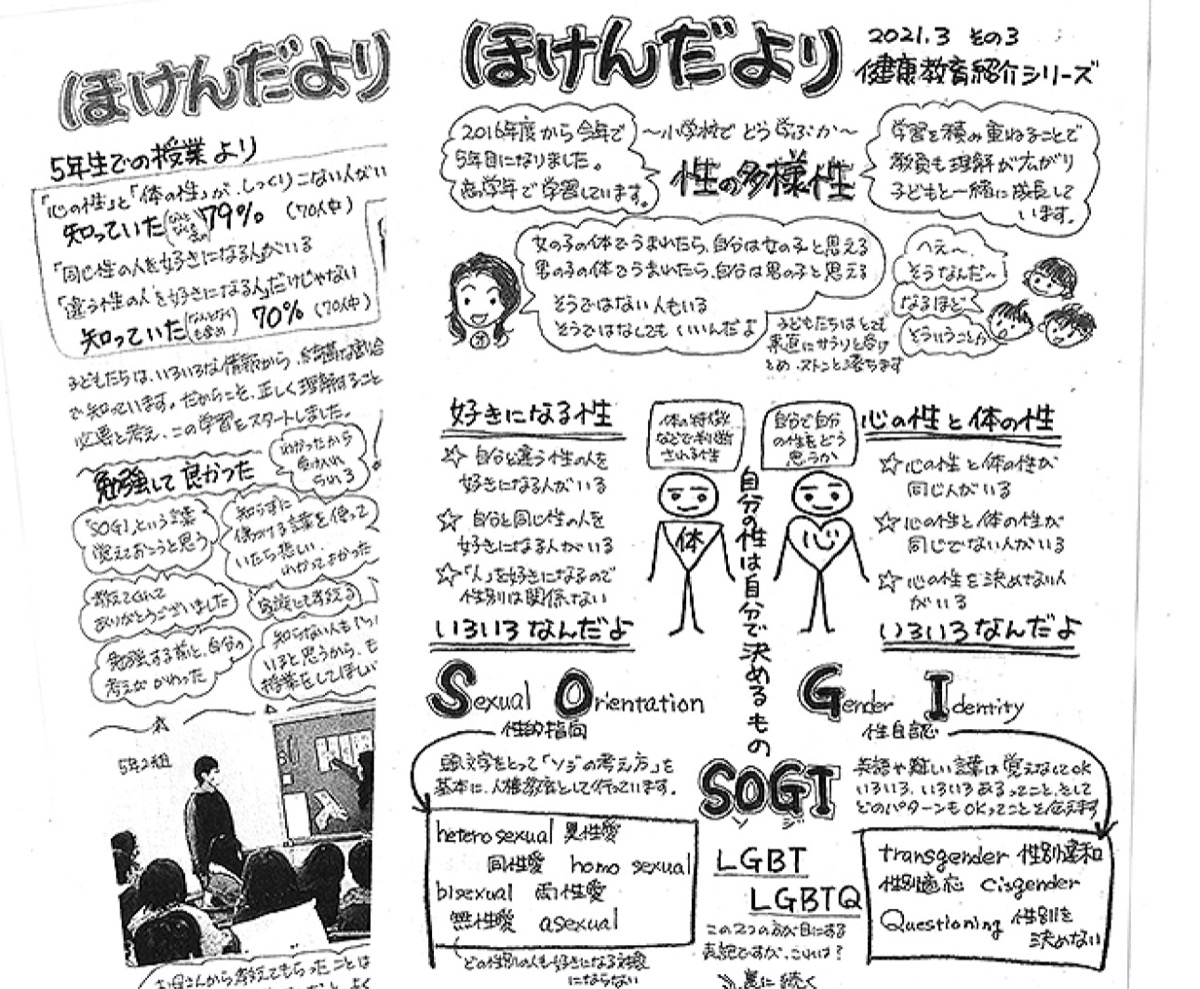 ほけんだより
5年生での授業より
「心の性」と「体の性」が、しっくりこない人がい
知っていた 79% (70人中)
「同じ性の人を好きになる人」がいる
「違う性の人を好きになる人」だけじゃない
知っていた(なんとなくも含め) 70% (70人中)
子どもたちは、いろいろな情報から、
で知っています。だからこそ、正しく理解すること
必要と考え、この学習をスタートしました。
勉強して良かった
わかったから
受け入れ
られる
「SOGI」という言葉
覚えておこうと思う
知らずに
傷つける言葉を使って
いたら悲しい
わかってよかった
教えてくれて
ありがとうございました
家族にも教える
勉強する前と、自分の
考えがかわった
知らない人も
いると思うから、も
授業をしてほしい
5年2組
お母さんから教えてもらったことは
ほけんだより
2021.3 その3
健康教育紹介シリーズ
2016年度から今年で
5年目になりました。
高学年で学習しています。
〜小学校でどう学ぶか〜
性の多様性
学習を積み重ねることで
教員も理解が広がり
子どもと一緒に成長して
います。
女の子の体でうまれたら、自分は女の子と思える
男の子の体でうまれたら、自分は男の子と思える
そうではない人もいる
そうではなしてもいいんだよ
へえ〜
そうなんだ〜
なるほど
そういうことか
子どもたちはとても
素直にサラリと受け
とめ、ストンと落ちます
好きになる性
☆ 自分と違う性の人を
好きになる人がいる
☆ 自分と同じ性の人を
好きになる人がいる
☆「人」を好きになるので
性別は関係ない
いろいろなんだよ
体の特徴
などで判断
される性
自分で自分
の性をどう
思うか
体
心
自分の性は自分で決めるもの
心の性と体の性
☆心の性と体の性が
同じ人がいる
☆心の性と体の性が
同じでない人がいる
☆心の性を決めない人
がいる
いろいろなんだよ
Sexual Orientation
性的指向
Gender Identity
性自認
頭文字をとって「ソジの考え方」を
基本に、人権教育として行っています。
SOGI
ソ ジ
英語や難しい言葉は覚えなくてOK
いろいろ、いろいろあるってこと、そして
どのパターンもOKってことを伝えます
hetero sexual 異性愛
同性愛 homo sexual
bisexual 両性愛
無性愛 asexual
どの性別の人も好きになる対象
にならない
LGBT
LGBTQ
この2つの方が目にする
表記ですが、これは?
裏に続く
transgender 性別違和
性別適応 cisgender
Questioning 性別を
決めない